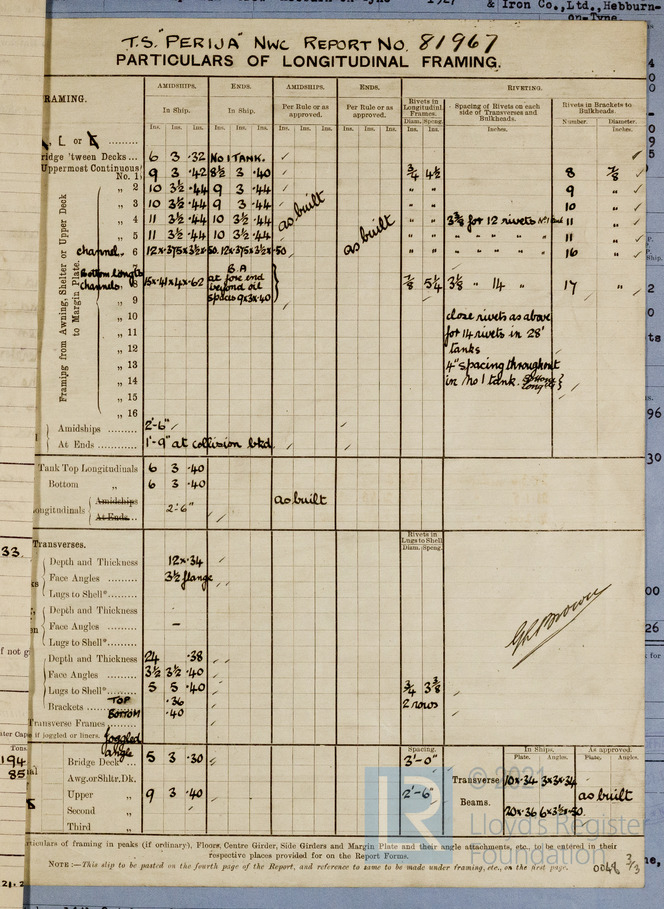 1927 & Iron Co., Ltd., Hebburn-
on-Tyne.
T.S. "PERIJA" NWC REPORT NO. 81967
PARTICULARS OF LONGITUDINAL FRAMING.
RAMING. AMIDSHIPS. ENDS. AMIDSHIPS. ENDS. RIVETING.
In Ship. In Ship. Per Rule or as approved. Per Rule or as approved. Rivets in Longitudinl. Frames. Spacing of Rivets on each side of Transverses and Bulkheads. Rivets in Brackets to Bulkheads.
Ins. Ins. Ins. Ins. Ins. Ins. Ins. Ins. Ins. Ins. Ins. Ins. Diam. Speng. Ins. Ins. Inches. Number. Diameter. Inches.
ridge 'tween Decks ... 6 3 .32 NO 1 TANK. ✓
Uppermost Continuous No. 1 9 3 .42 8½ 3 .40 ✓ ¾ 4½ 8 ⅞ ✓
„ 2 10 3½ .44 9 3 .44 " " 9 " ✓
„ 3 10 3½ .44 9 3 .44 as built " " 10 " ✓
„ 4 11 3½ .44 10 3½ .44 as built " " 3⅜ for 12 rivets No 1 11 " ✓
„ 5 11 3½ .44 10 3½ .44 " " " " " " 11 " ✓
channel. 6 12×.375×3½×.50 12×.375×3½×.50 " " " " " " 16 " ✓
Framing from Awning, Shelter or Upper Deck to Margin Plate.
Bottom longls channels. 8 15×.41×4×.62 B.A at fore end beyond oil spaces 9×3×.40 ⅞ 5¼ 3⅛ " 14 " 17 " ✓
„ 9
„ 10 close rivets as above
„ 11 for 14 rivets in 28'
„ 12 tanks
„ 13 4" spacing throughout
„ 14 in No 1 tank. Bottom Longls
„ 15
„ 16
Amidships ......... 2'-6" ✓
At Ends ......... 1'-9" at collision bkd.
Tank Top Longitudinals 6 3 .40
Bottom „ 6 3 .40
ongitudinals Amidships 2'-6" as built
At Ends ...
Transverses. Rivets in Lugs to Shell Diam. Speng.
Depth and Thickness 12×.34
Face Angles ......... 3½ flange
Lugs to Shell* .........
Depth and Thickness
Face Angles ......... –
Lugs to Shell* ...
Depth and Thickness 24 .38
Face Angles ......... 3½ 3½ .40
Lugs to Shell* ......... 5 5 .40 ¾ 3⅜
Brackets ....... TOP .36 2 rows
BOTTOM .40
Transverse Frames ......
if joggled or liners. Joggled angle
Spacing. In Ships. As approved.
Plate. Angles. Plate. Angles.
Bridge Deck ... 5 3 .30 3'-0"
Awg.or Shltr.Dk. Transverse 10×.34 3×3×.34
Upper „ 9 3 .40 2'-6" Beams. as built
Second „ 20×.36 6×3½×.50
Third „
rticulars of framing in peaks (if ordinary), Floors, Centre Girder, Side Girders and Margin Plate and their angle attachments, etc., to be entered in their
respective places provided for on the Report Forms.
NOTE :—This slip to be pasted on the fourth page of the Report, and reference to same to be made under framing, etc., on the first page.
0048 3/3
© 2021
Lloyd's Register
Foundation
LR
33.
Tons.
194
85
96
30
00
26